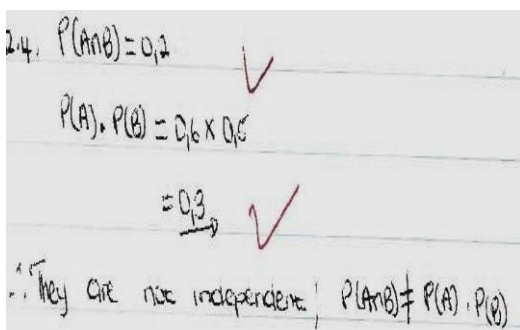 2.4. P(A∩B) = 0,2
P(A). P(B) = 0,6 x 0,5
= 0,3
∴ They are not independent; P(A∩B) ≠ P(A) . P(B)